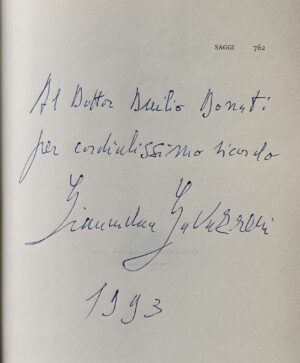 SAGGI 762
Al Dottor Duilio Donati
per cordialissimo ricordo
Gianandrea Gavazzeni
1993